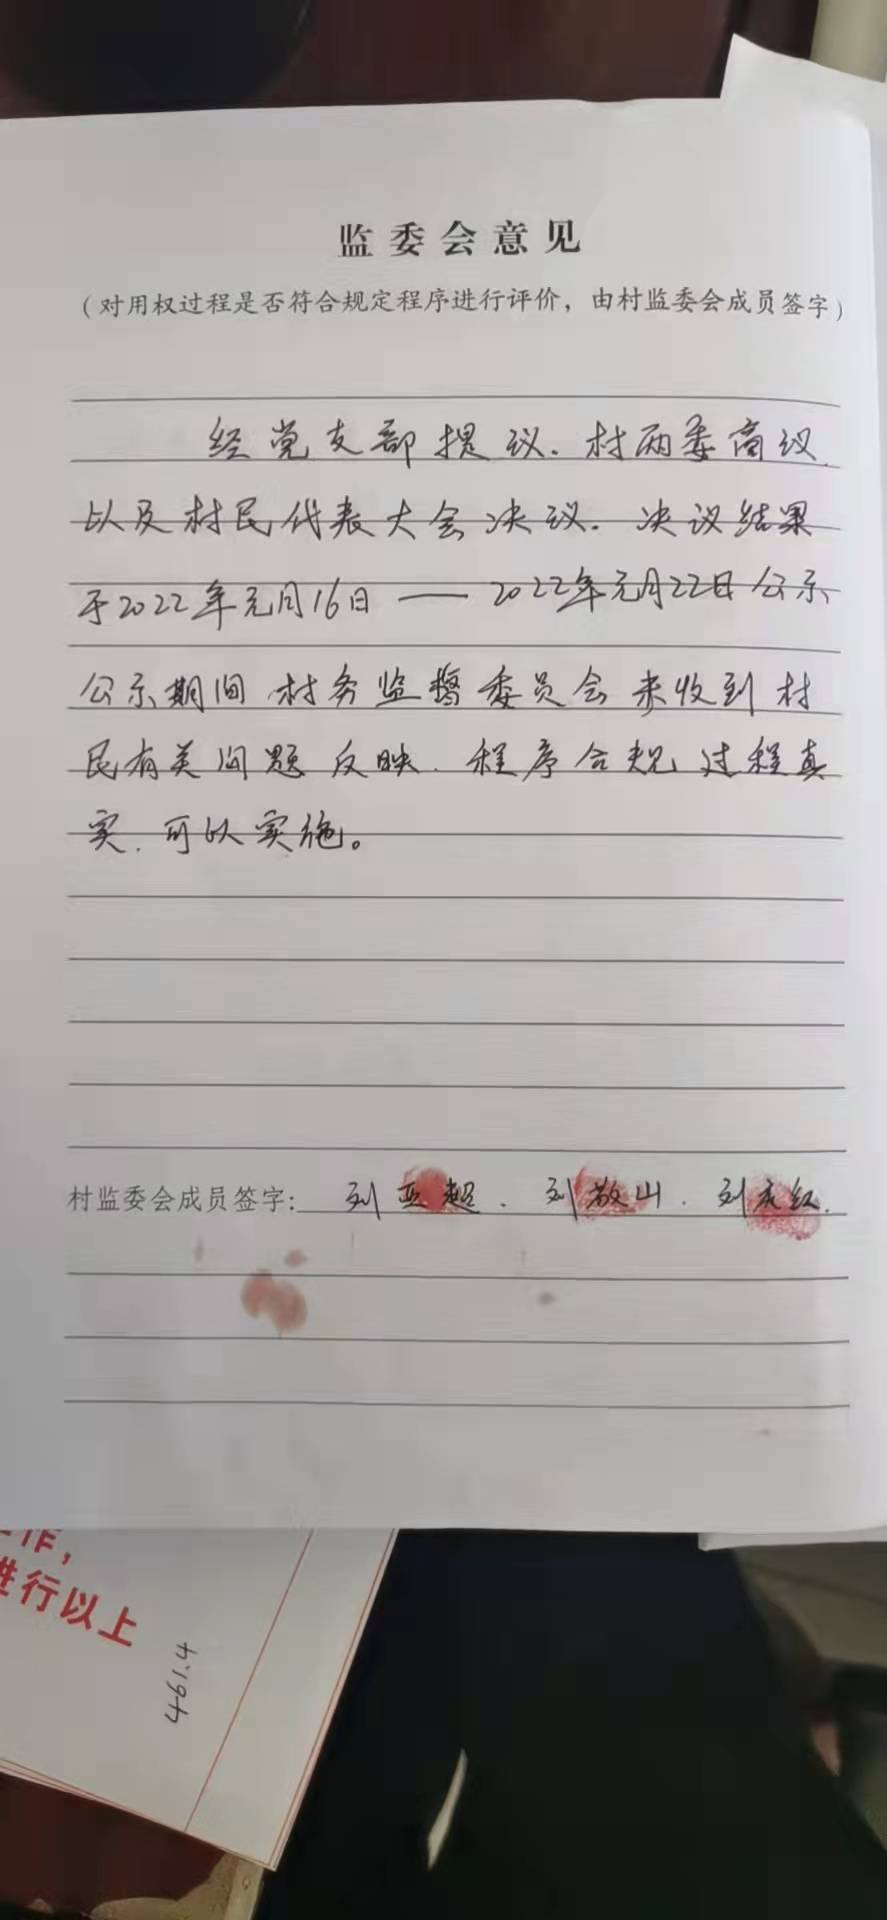 监委会意见
（对用权过程是否符合规定程序进行评价，由村监委会成员签字）
经党支部提议.村两委商议.
以及村民代表大会决议.决议结果
于2022年元月16日——2022年元月22日公示.
公示期间.村务监督委员会未收到村
民有关问题反映.程序合规.过程真
实.可以实施。
村监委会成员签字：刘亚超.刘敬山.刘
作，
进行以上